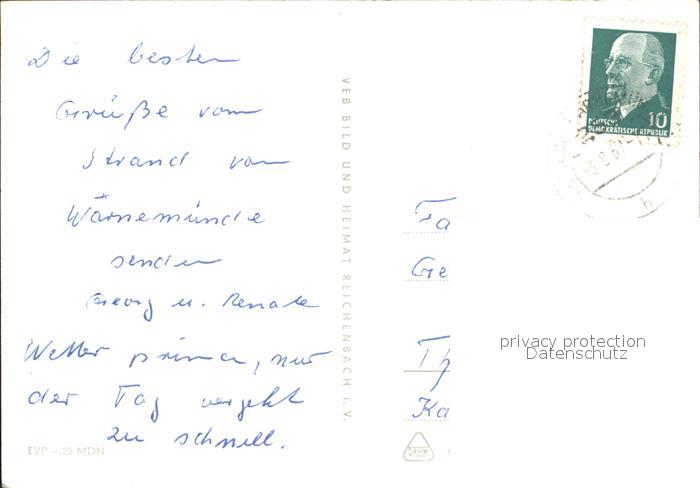 Die besten
Grüße vom
Strand von
Warnemünde
senden
Georg u. Renate
Wetter prima, nur
der Tag vergeht
zu schnell.
EVP –.25 MDN
VEB BILD UND HEIMAT REICHENBACH I. V.
10
DEUTSCHE
DEMOKRATISCHE REPUBLIK
Fa
Ge
Th
Ka
privacy protection
Datenschutz